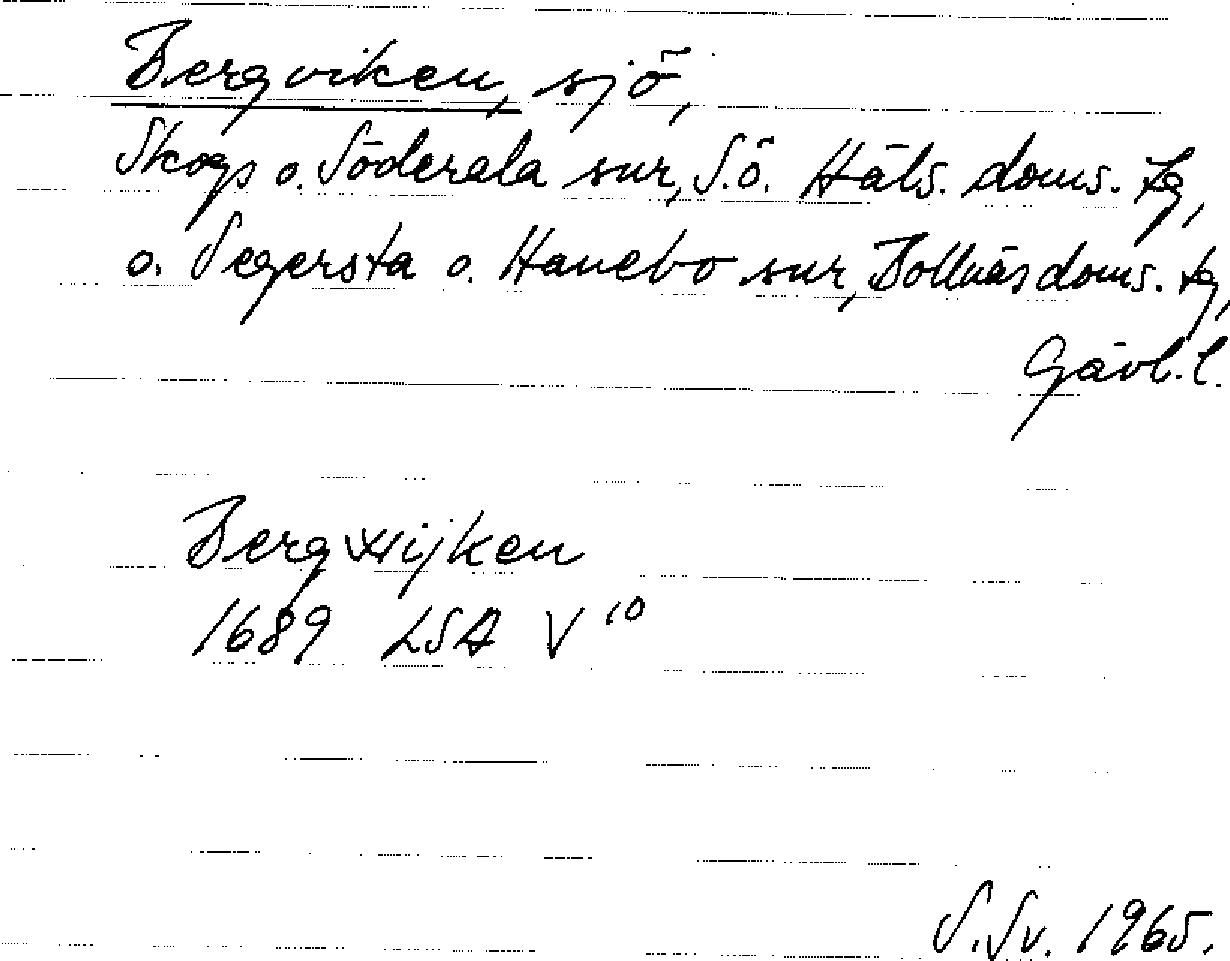 Bergviken, sjö,
Skogs o. Söderala snr, S.ö. Häls. doms. tg,
o. Segersta o. Hanebo snr, Bollnäs doms. tg,
Gävl. l.
Bergwijken
1689 LSA V 10
S. Sv. 1965.